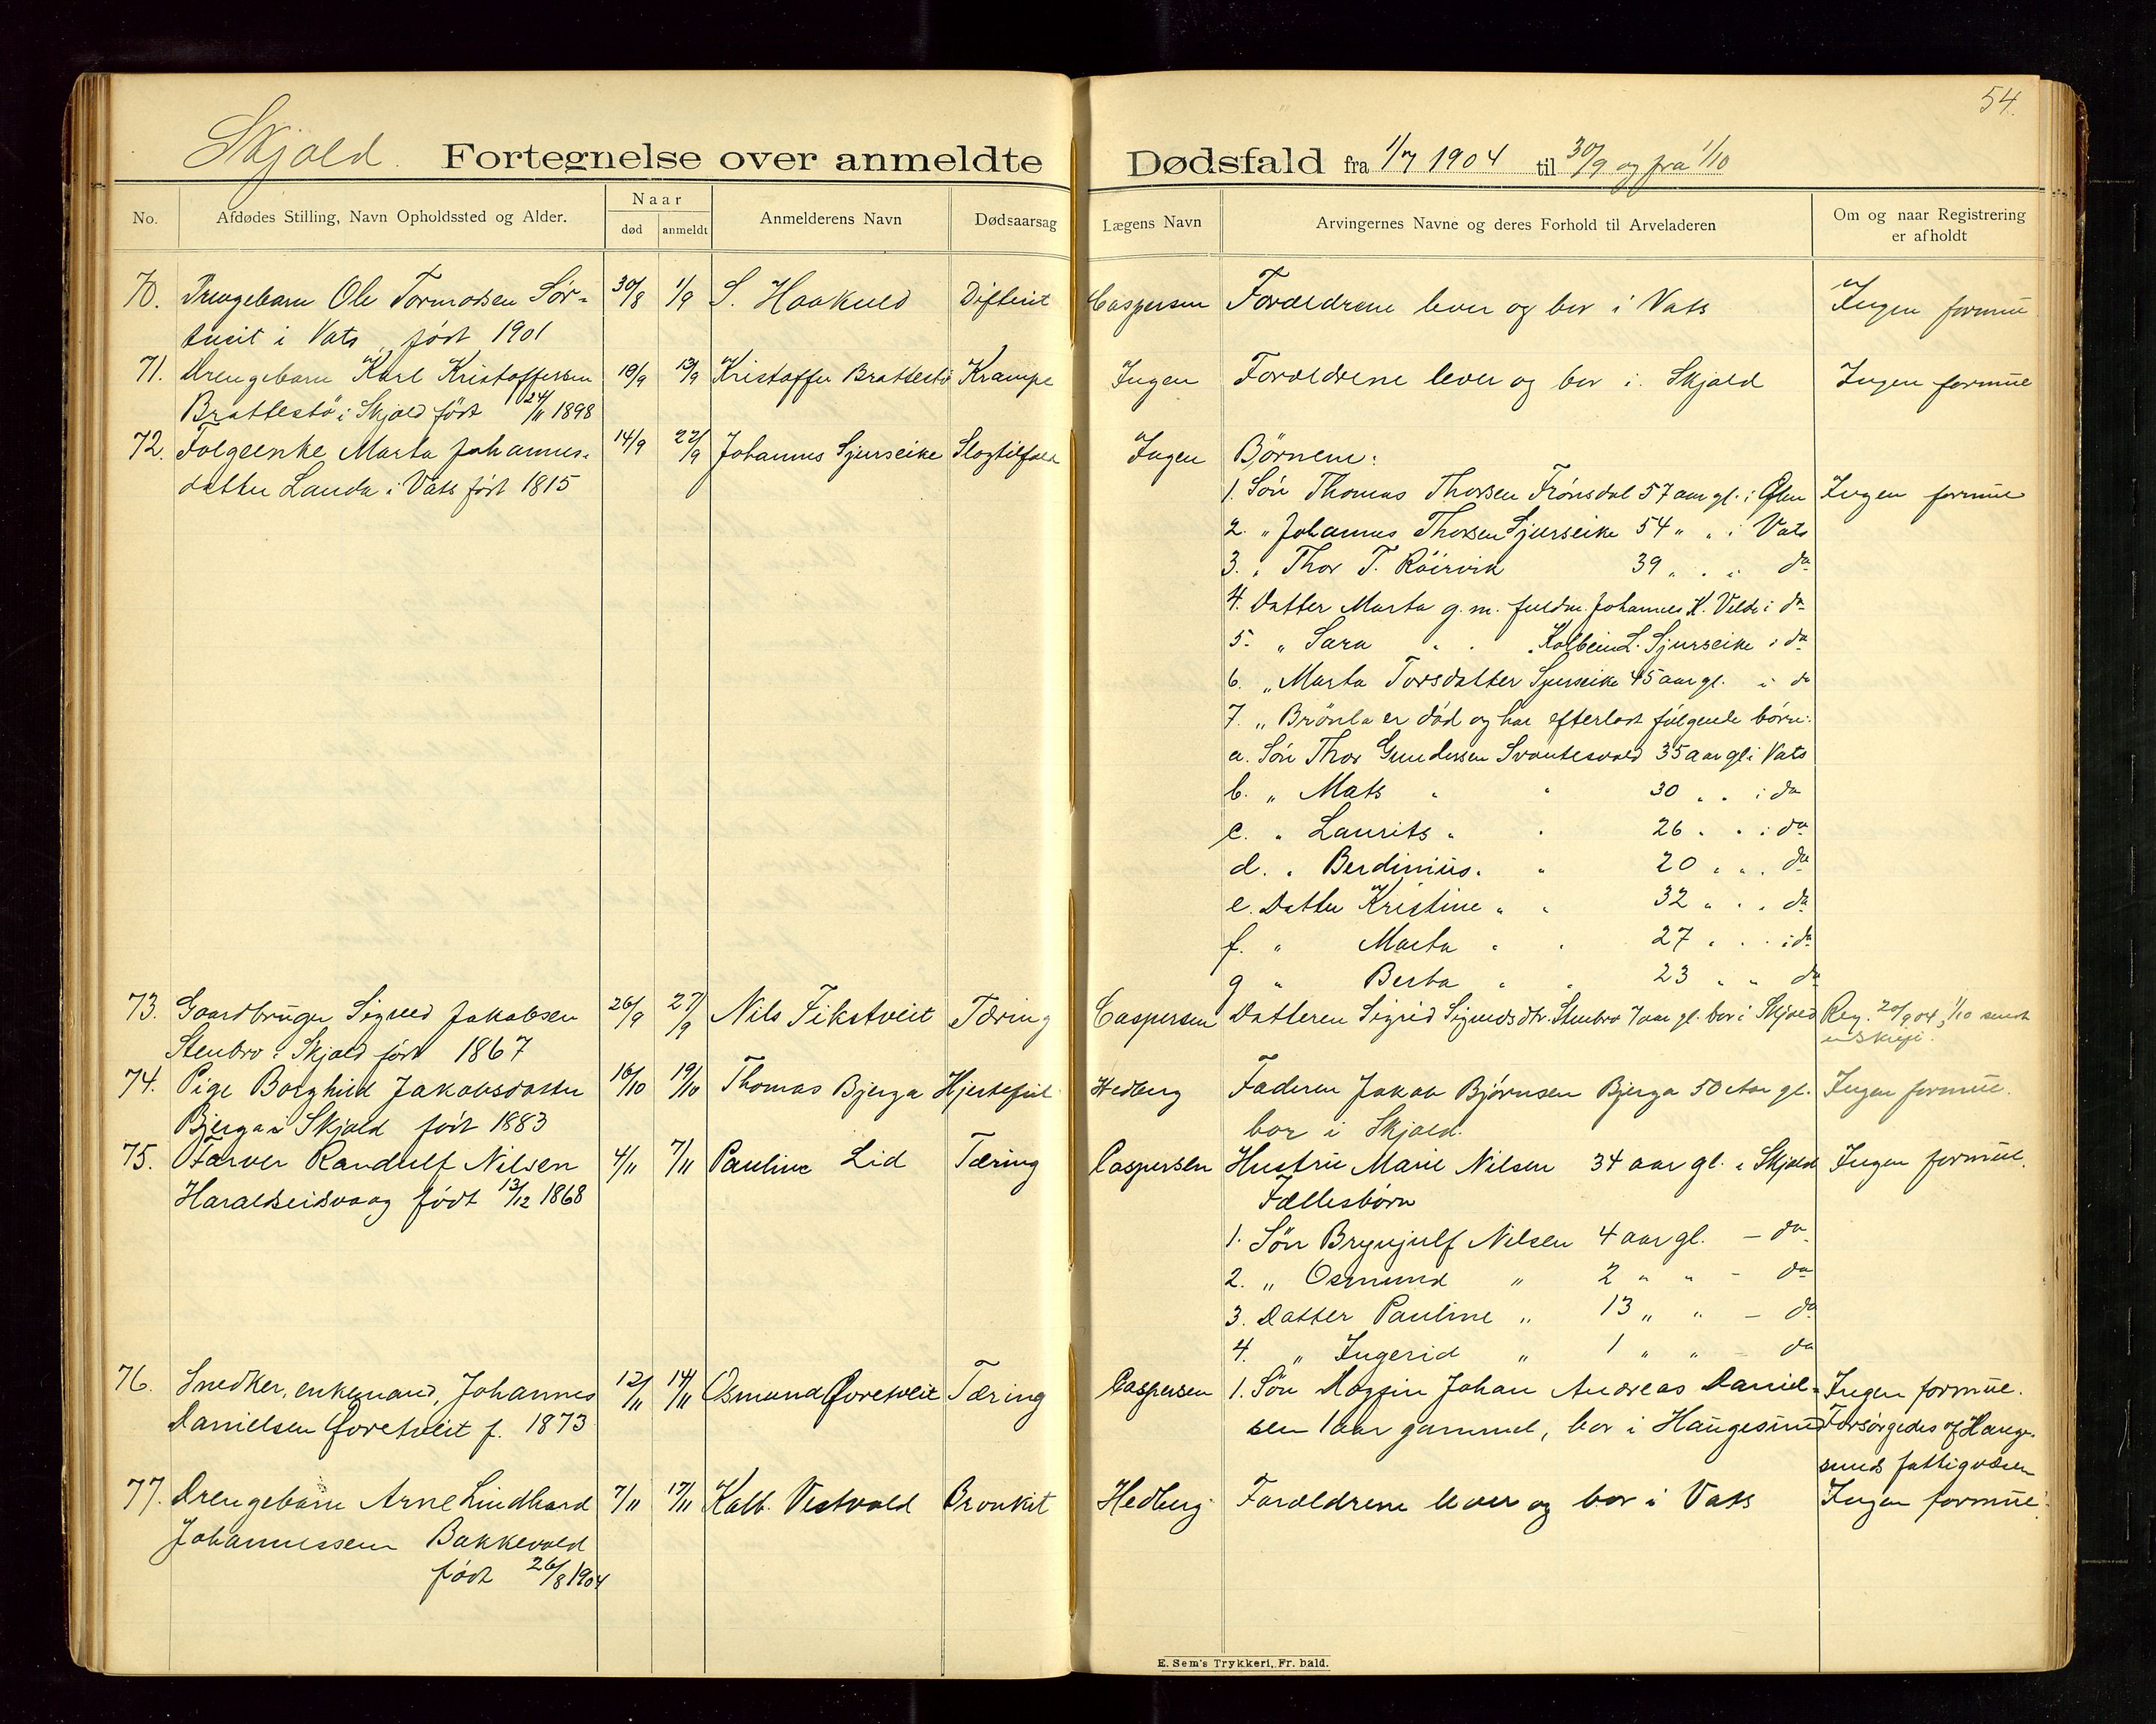 54.
Skjold. Fortegnelse over anmeldte Dødsfald fra 1/7 1904 til 30/9 og fra 1/10
No. Afdødes Stilling, Navn Opholdssted og Alder. Naar død anmeldt Anmelderens Navn Dødsaarsag Lægens Navn Arvingernes Navne og deres Forhold til Arveladeren Om og naar Registrering er afholdt
70. Drengebarn Ole Tormodsen Sör- 30/8 1/9 S. Haakuld Difterit Caspersen Forældrene lever og bor i Vats Ingen formue
tveit i Vats, født 1901
71. Drengebarn Karl Kristoffersen 10/9 13/9 Kristoffer Brattestö Krampe Ingen Forældrene lever og bor i Skjold Ingen formue
Brattestö i Skjold født 24/11 1898
72. Folgeenke Marta Johannes- 14/9 22/9 Johannes Sjurseike Slagtilfæld Ingen Börnene:
datter Landa i Vats født 1815
1. Sön Thomas Thorsen Frönsdal 57 aar gl. i Ølen Ingen formue
2. " Johannes Thorsen Sjurseike 54 " " i Vats
3. " Thor T. Röirvik 39 " " i do
4. Datter Marta g. m. fuldm. Johannes K. Velde i do
5. " Sara " " " Kolbein L. Sjurseike i do
6. " Marta Torsdatter Sjurseike 45 aar gl. i do
7. " Brönla er død og har efterladt følgende börn:
a. Sön Thor Gundersen Svantesvold 35 aar gl i Vats
b. " Mats " " 30 " " i do
c. " Laurits " " 26 " " i do
d. " Berdinius " " 20 " " " do
e. Datter Kristine " " 32 " " " do
f. " Marta " " 27 " " i do
g " Berta " " 23 " " do
73. Gaardbruger Sigurd Jakobsen 26/9 27/9 Nils Fikstveit Tæring Caspersen Datteren Sigrid Sigurdsdtr. Stenbro 7 aar gl. bor i Skjold Reg. 20/9 04, 1/10 sendt
Stenbro i Skjold født 1867
74. Pige Borghild Jakobsdatter 16/10 19/10 Thomas Bjerga Hjertefeil Hedberg Faderen Jakob Björnsen Bjerga 50 Aar gl. Ingen formue.
Bjerga i Skjold født 1883 bor i Skjold.
75. Farver Randulf Nilsen 4/11 7/11 Pauline Lid Tæring Caspersen Hustru Marie Nilsen 34 aar gl. i Skjold Ingen formue.
Haraldseidsvaag født 13/12 1868 Fællesbörn
1. Sön Brynjulf Nilsen 4 aar gl. – do
2. " Osmund " 2 " " – do
3. Datter Pauline " 13 " " – do
4. " Ingerid " 1 " " – do
76. Snedker, enkemand, Johannes 12/11 14/11 Osmund Øvretveit Tæring Caspersen 1. Sön Magfin Johan Andreas Daniel- Ingen formue.
Danielsen Øvretveit f. 1873 sen 1 aar gammel, bor i Haugesund Forsörgedes af Hauge-
sunds fattigvæsen
77. Drengebarn Arne Lindhard 7/11 17/11 Kolb. Vestvold Bronkit Hedberg Forældrene lever og bor i Vats Ingen formue.
Johannessen Bakkevold
født 26/8 1904
E. Sem's Trykkeri, Fr. hald.